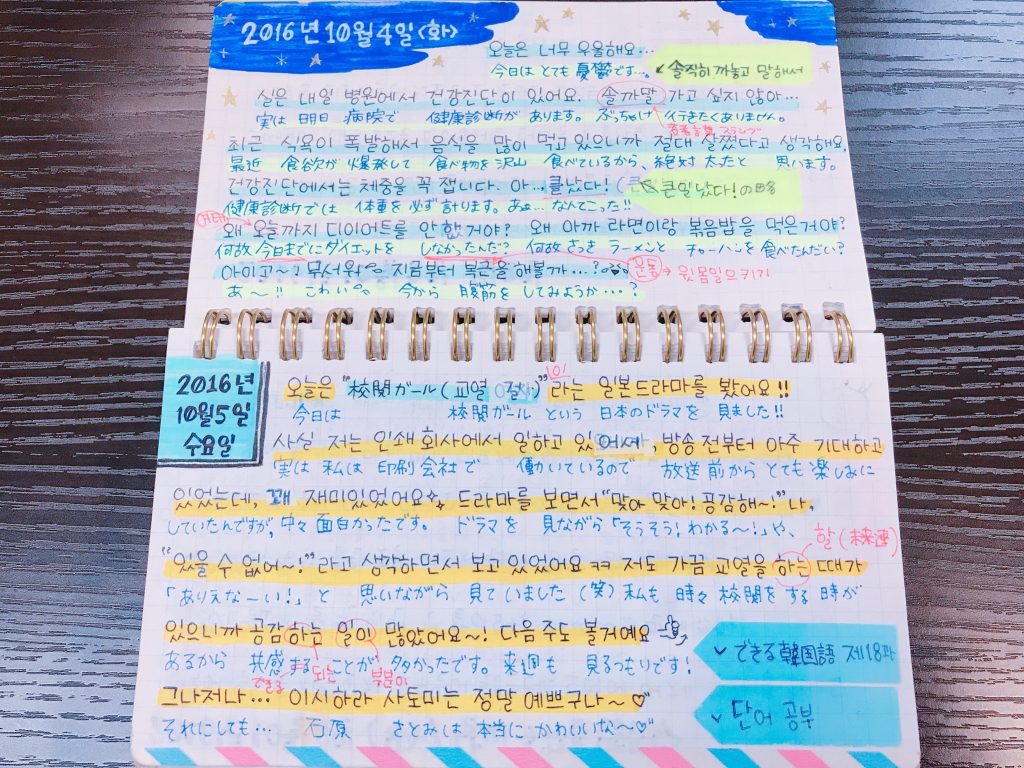 2016년 10월 4일 <화>
오늘은 너무 우울해요...
今日は とても 憂鬱です...。
↙솔직히 까놓고 말해서
실은 내일 병원에서 건강진단이 있어요. 솔까말 가고 싶지 않아...
実は 明日 病院で 健康診断が あります。ぶっちゃけ 行きたくありません。
최근 식욕이 폭발해서 음식을 많이 먹고 있으니까 절대 살쪘다고 생각해요.
最近 食欲が 爆発して 食べ物を 沢山 食べているから、絶対 太ったと 思います。
건강진단에서는 체중을 꼭 잽니다. 아... 큰났다! (큰
큰일났다!の略
健康診断では 体重を 必ず 計ります。あぁ...なんてこった!!
왜 오늘까지 다이어트를 안 했거야? 왜 아까 라면이랑 볶음밥을 먹은거야?
何故 今日までにダイエットを しなかったんだ? 何故 さっき ラーメンと チャーハンを 食べたんだい?
아이고~! 무서워 지금부터 복근을 해볼까...?
운동 → 윗몸일으키기
あ~!! こわい 今から 腹筋を してみようか...?
2016년
10월5일
수요일
오늘은 "校閲ガール(교열 걸)"라는 일본드라마를 봤어요!!
今日は 校閲ガール という 日本のドラマを 見ました!!
사실 저는 인쇄 회사에서 일하고 있어서, 방송 전부터 아주 기대하고
実は 私は 印刷会社で 働いているので 放送前から とても 楽しみに
있었는데, 꽤 재미있었어요 드라마를 보면서 "맞아 맞아! 공감해~!"나,
していたんですが、中々 面白かったです。 ドラマを 見ながら「そうそう!わかる~!」や、
할(未来連)
"있을 수 없어~!"라고 생각하면서 보고 있었어요 ㅋㅋ 저도 가끔 교열을 하는 때가
「ありえな~い!」と 思いながら 見ていました(笑) 私も 時々 校閲を する 時が
있으니까 공감하는 일이 많았어요~! 다음 주도 볼거예요
되는 부분이
あるから 共感 することが 多かったです。来週も 見るつもりです!
できる
그나저나... 이시하라 사토미는 정말 예쁘구나~♡
それにしても... 石原 さとみは 本当に かわいいな~♡
✓ できる韓国語 제18과
✓ 단어 공부